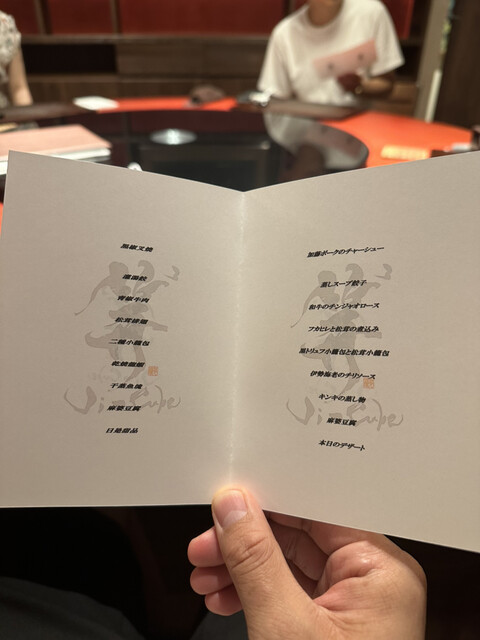 黒椒叉焼
灌湯餃
青椒牛肉
松茸排翅
二種小籠包
乾焼龍蝦
干蒸魚
麻婆豆腐
日替甜品
加藤ポークのチャーシュー
蒸しスープ餃子
和牛のチンジャオロース
フカヒレと松茸の煮込み
黒トリュフ小籠包と松茸小籠包
伊勢海老のチリソース
キンキの蒸し物
麻婆豆腐
本日のデザート